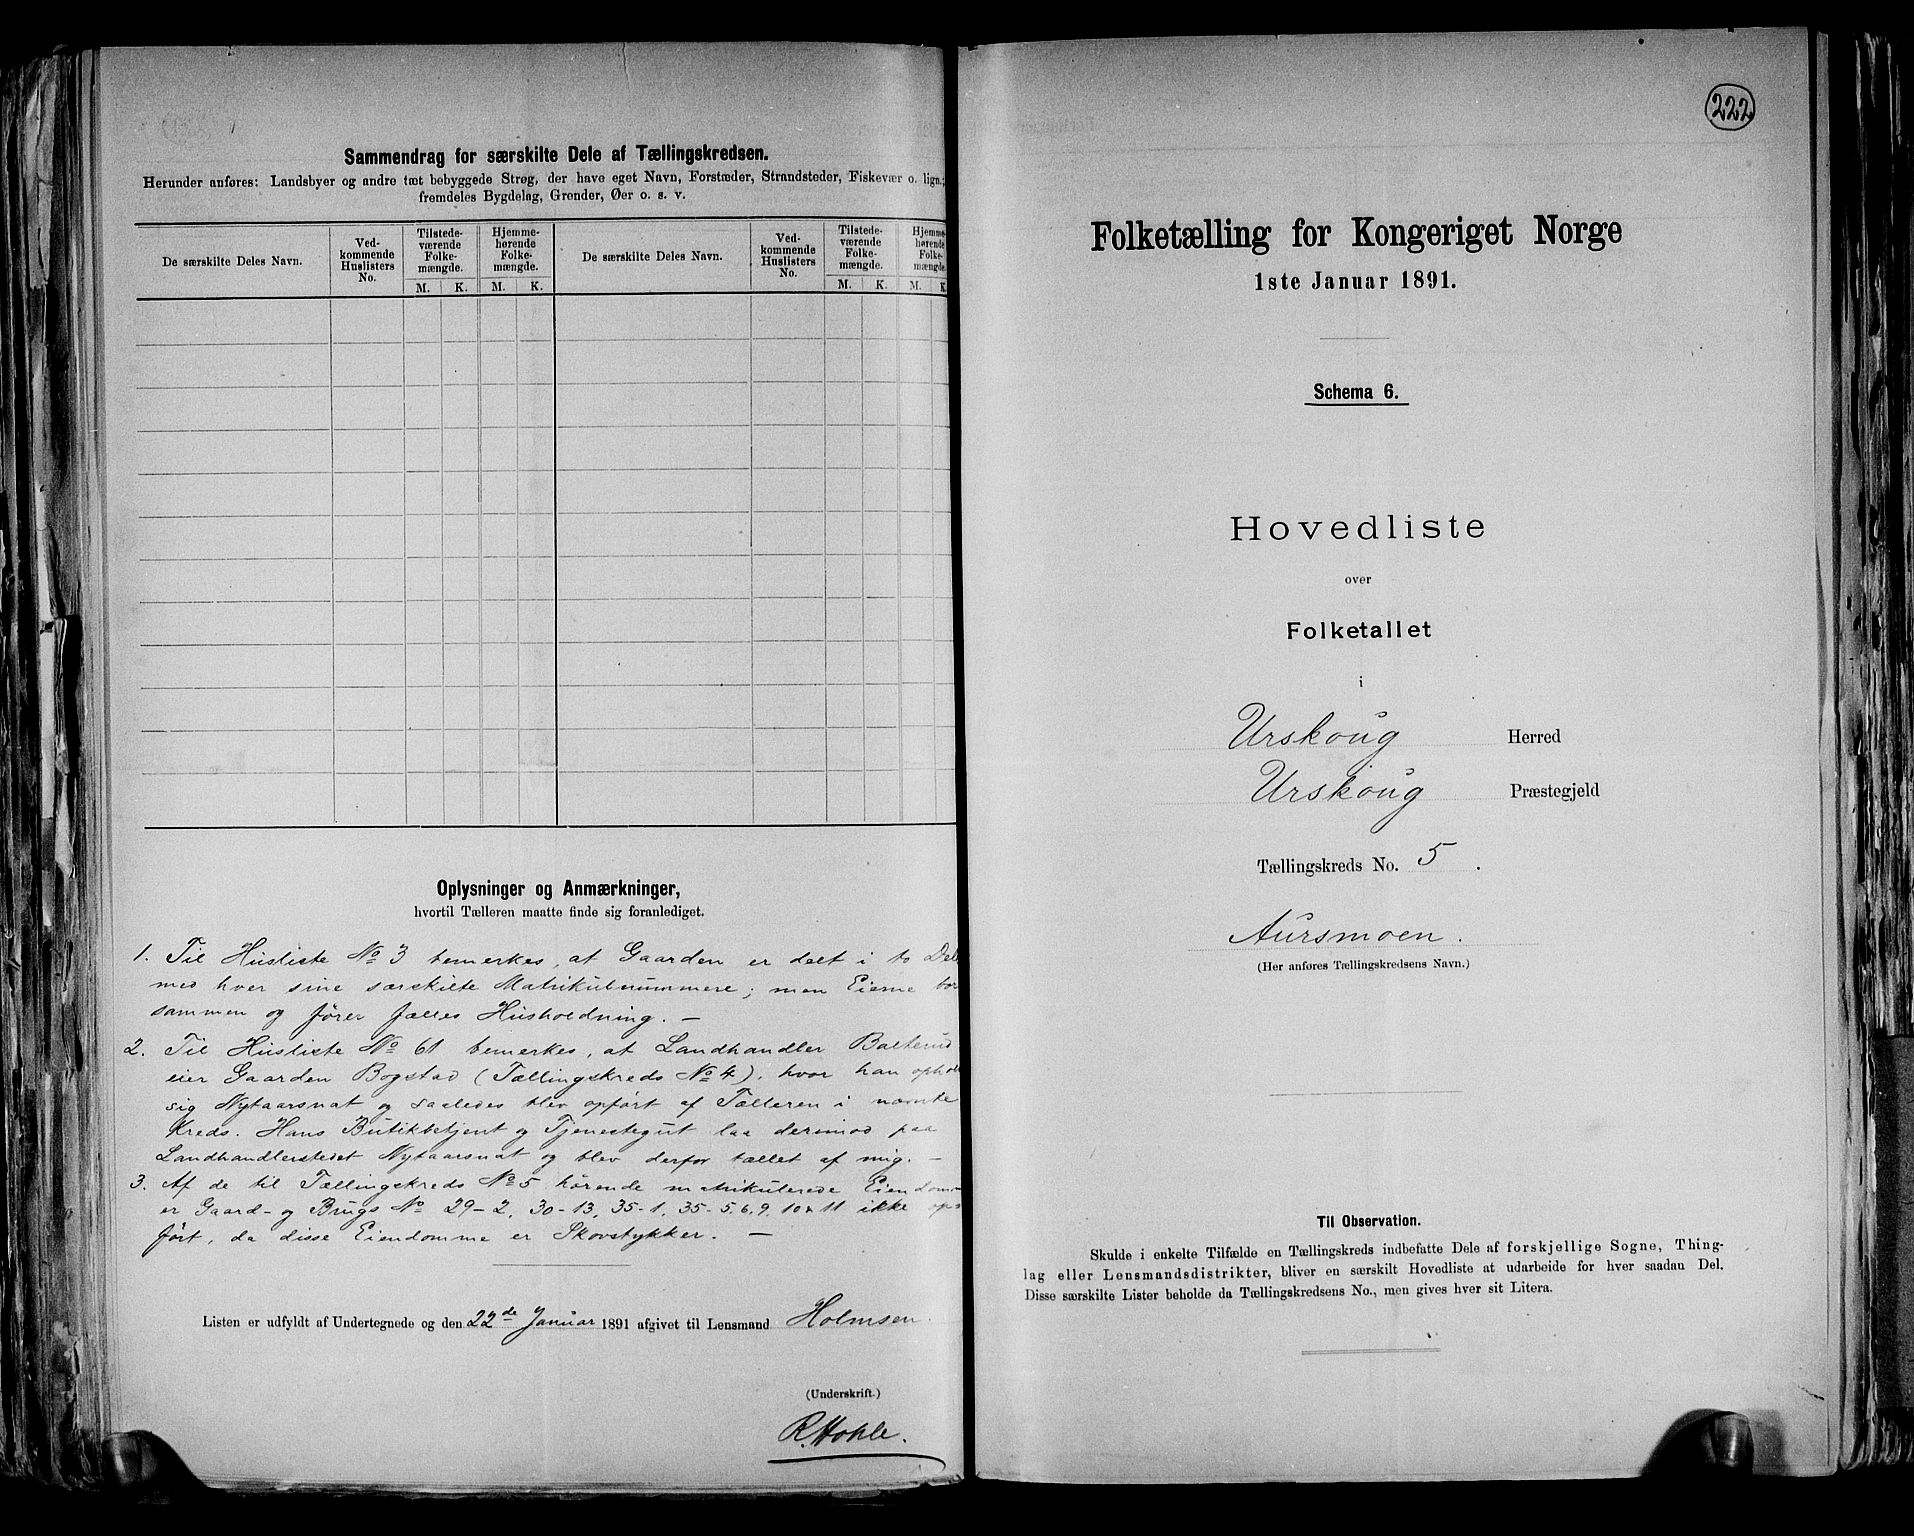 Sammendrag for særskilte Dele af Tællingskredsen.
Herunder anføres: Landsbyer og andre tæt bebyggede Strøg, der have eget Navn, Forstæder, Strandsteder, Fiskevær o. lign.;
fremdeles Bygdelag, Grender, Øer o. s. v.
De særskilte Deles Navn.
Ved-
kommende
Huslisters
No.
Tilstede-
værende
Folke-
mængde.
Hjemme-
hørende
Folke-
mængde.
De særskilte Deles Navn.
Ved-
kommende
Huslisters
No.
Tilstede-
værende
Folke-
mængde.
Hjemme-
hørende
Folke-
mængde.
M. K. M. K. M. K. M. K.
Oplysninger og Anmærkninger,
hvortil Tælleren maatte finde sig foranlediget.
1. Til Husliste No 3 bemerkes, at Gaarden er delt i to Del
med hver sine særskilte Matrikulnummere; men Eierne bor
sammen og fører fælles Husholdning. –
2. Til Husliste No 61 bemerkes, at Landhandler Balterud
eier Gaarden Bogstad (Tællingskreds No 4), hvor han ophol
sig Nytaarsnat og saaledes blev opført af Tælleren i nævnte
Kreds. Hans Butikbetjent og Tjenestegut laa derimod paa
Landhandlerstedet Nytaarsnat og blev derfor tællet af mig. –
3. Af de til Tællingskreds No 5 hørende matrikulerede Eiendomme
er Gaard- og Brugs No 29-2, 30-13, 35-1, 35-5, 6, 9, 10 & 11 ikke op
ført, da disse Eiendomme er Skovstykker. –
Listen er udfyldt af Undertegnede og den 22de Januar 1891 afgivet til Lensmand Holmsen.
(Underskrift.)
R. Hohle.
222
Folketælling for Kongeriget Norge
1ste Januar 1891.
Schema 6.
Hovedliste
over
Folketallet
i
Urskoug Herred
Urskoug Præstegjeld
Tællingskreds No. 5.
Aursmoen.
(Her anføres Tællingskredsens Navn.)
Til Observation.
Skulde i enkelte Tilfælde en Tællingskreds indbefatte Dele af forskjellige Sogne, Thing-
lag eller Lensmandsdistrikter, bliver en særskilt Hovedliste at udarbeide for hver saadan Del.
Disse særskilte Lister beholde da Tællingskredsens No., men gives hver sit Litera.